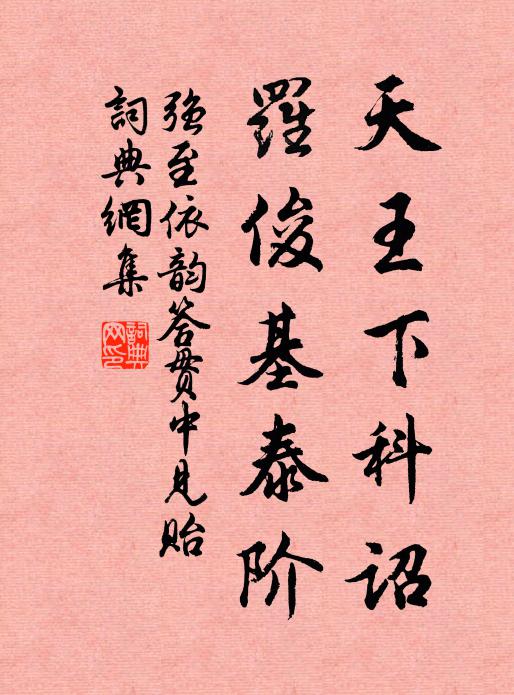 天王下科诏
羅俊基泰阶
強至依韵答贯中見貽
詞典網集
詞典网印